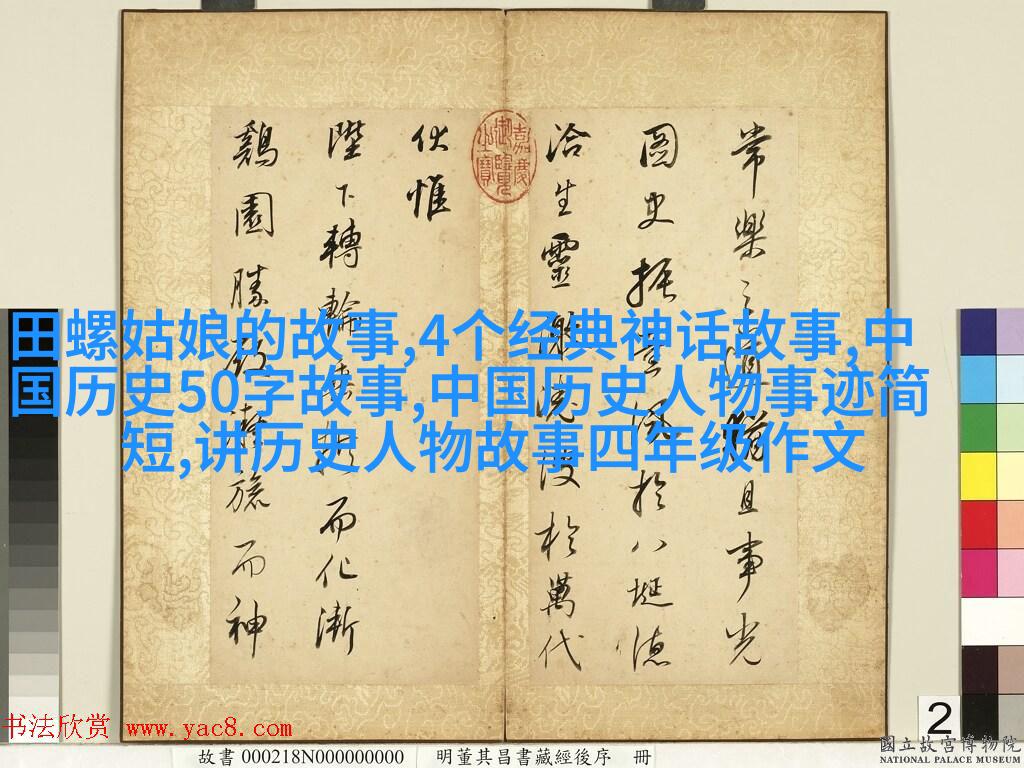 常樂之猶且事光
圖史振風於八埏德
洽生靈激波於萬代
嘉慶御覽之寶
伏惟
陛下轉輪垂拱而化漸
鷄園勝殘凝旒而神
田螺姑娘的故事,4个经典神话故事,中
国历史50字故事,中国历史人物事迹简
短,讲历史人物故事四年级作文
书法欣赏 www.yac8.com
故書 000218N000000000 明董其昌書藏經後序 冊
2
國立故宮博物院
NATIONAL PALACE MUSEUM